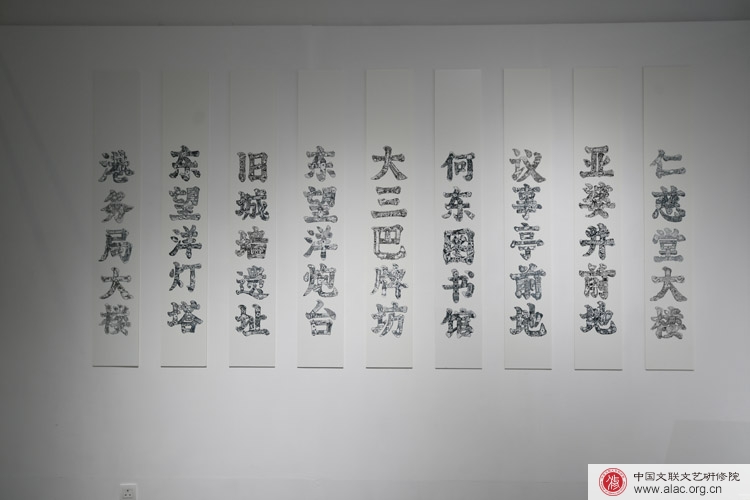 港务局大楼
东望洋灯塔
旧城墙遗址
东望洋炮台
大三巴牌坊
何东图书馆
议事亭前地
亚婆井前地
仁慈堂大楼
中国文联文艺研修院
www.alac.org.cn